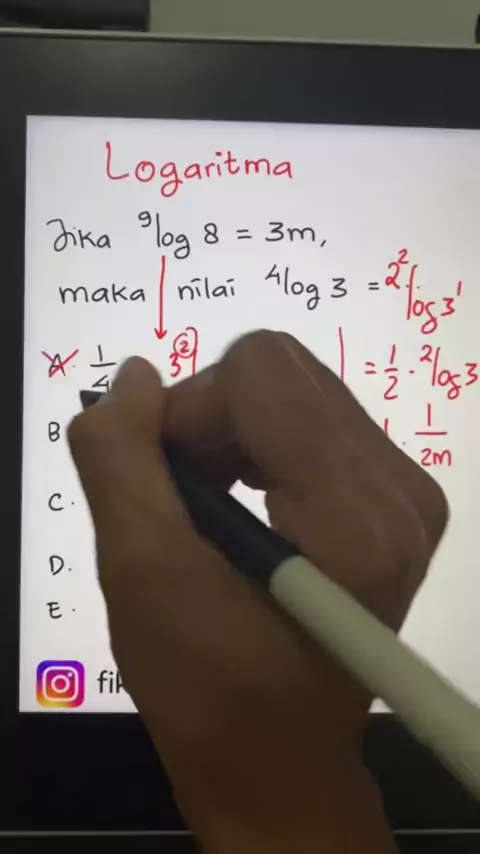 Logaritma
Jika ⁹log 8 = 3m,
maka nilai ⁴log 3 = 2² log 3¹
A. 1/4
3²
= 1/2 · ²log 3
· 1/2m
B
C.
D.
E.